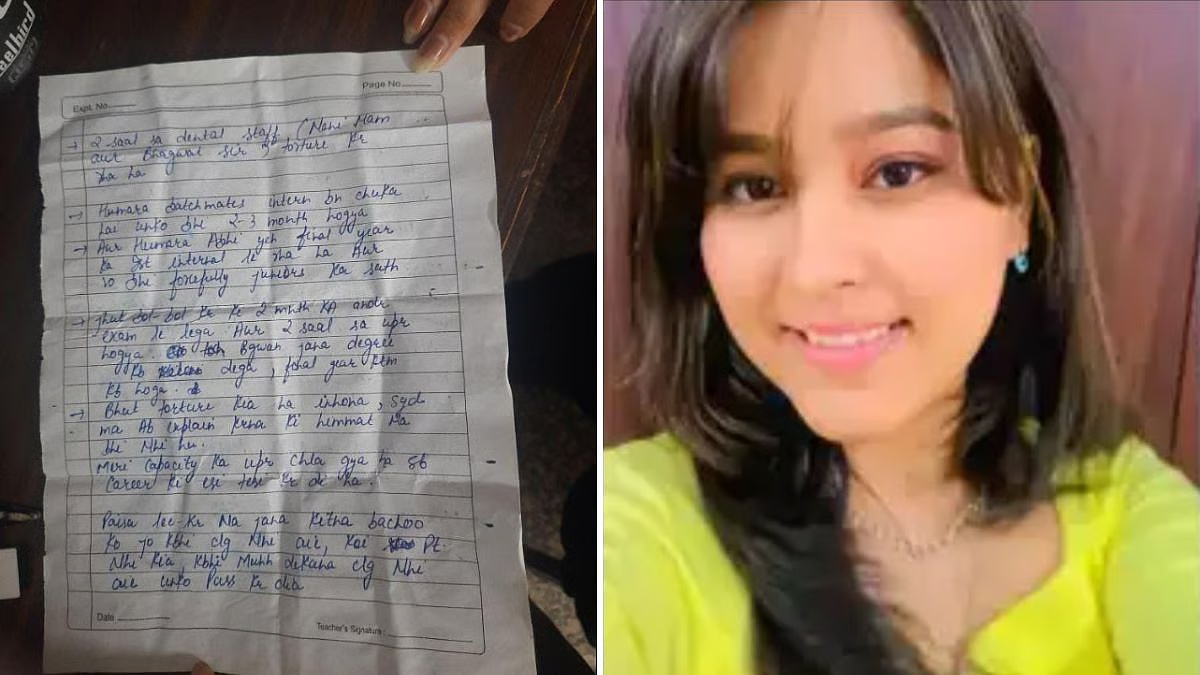 aelbird
Expt. No.
Page No.
→ 2 saal sa dental staff, (Nani Mam
aur Bhagwat sir) torture kr
rha ha
→ Humara batchmates intern bn chuka
hai unko bhi 2-3 month hogya
→ Aur Humara Abhi yeh final year
ka 1st internal le rha ha Aur
vo bhi forcefully juniors ka sath
→ Jhut bol-bol kr ke 2 month KA andr
exam le lega Aur 2 saal sa upr
hogya. Bgwan jana degree
kb dega, final year
kb hoga.
→ Bhut torture kia ha inhona,
ma Ab explain krna ki himmat na
bhi Nhi hu.
Meri capacity ka upr chla gya ha sb
Career ki esi tesi kr di ha.
Paisa lee-kr Na jana kitna bachoo
ko jo kbhi clg Nhi aie, koi Pt.
Nhi kia, kbhi Muhh dikana clg Nhi
aie unko Pass kr dia
Date
Teacher's Signature: